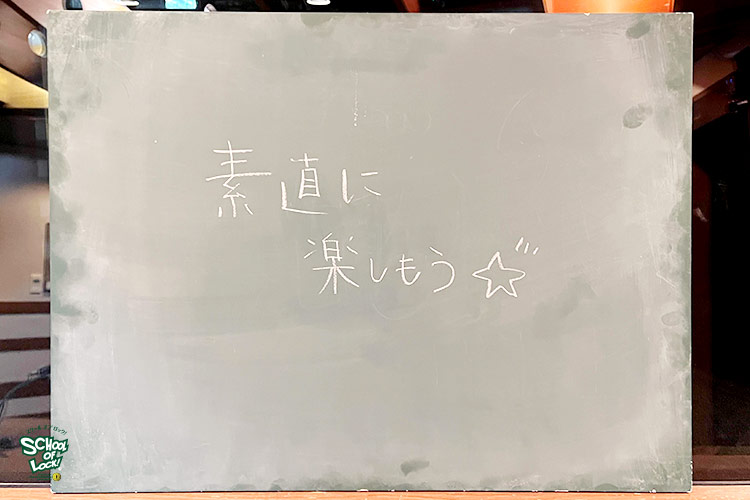 素直に
楽しもう☆
SCHOOL
OF
LOCK!